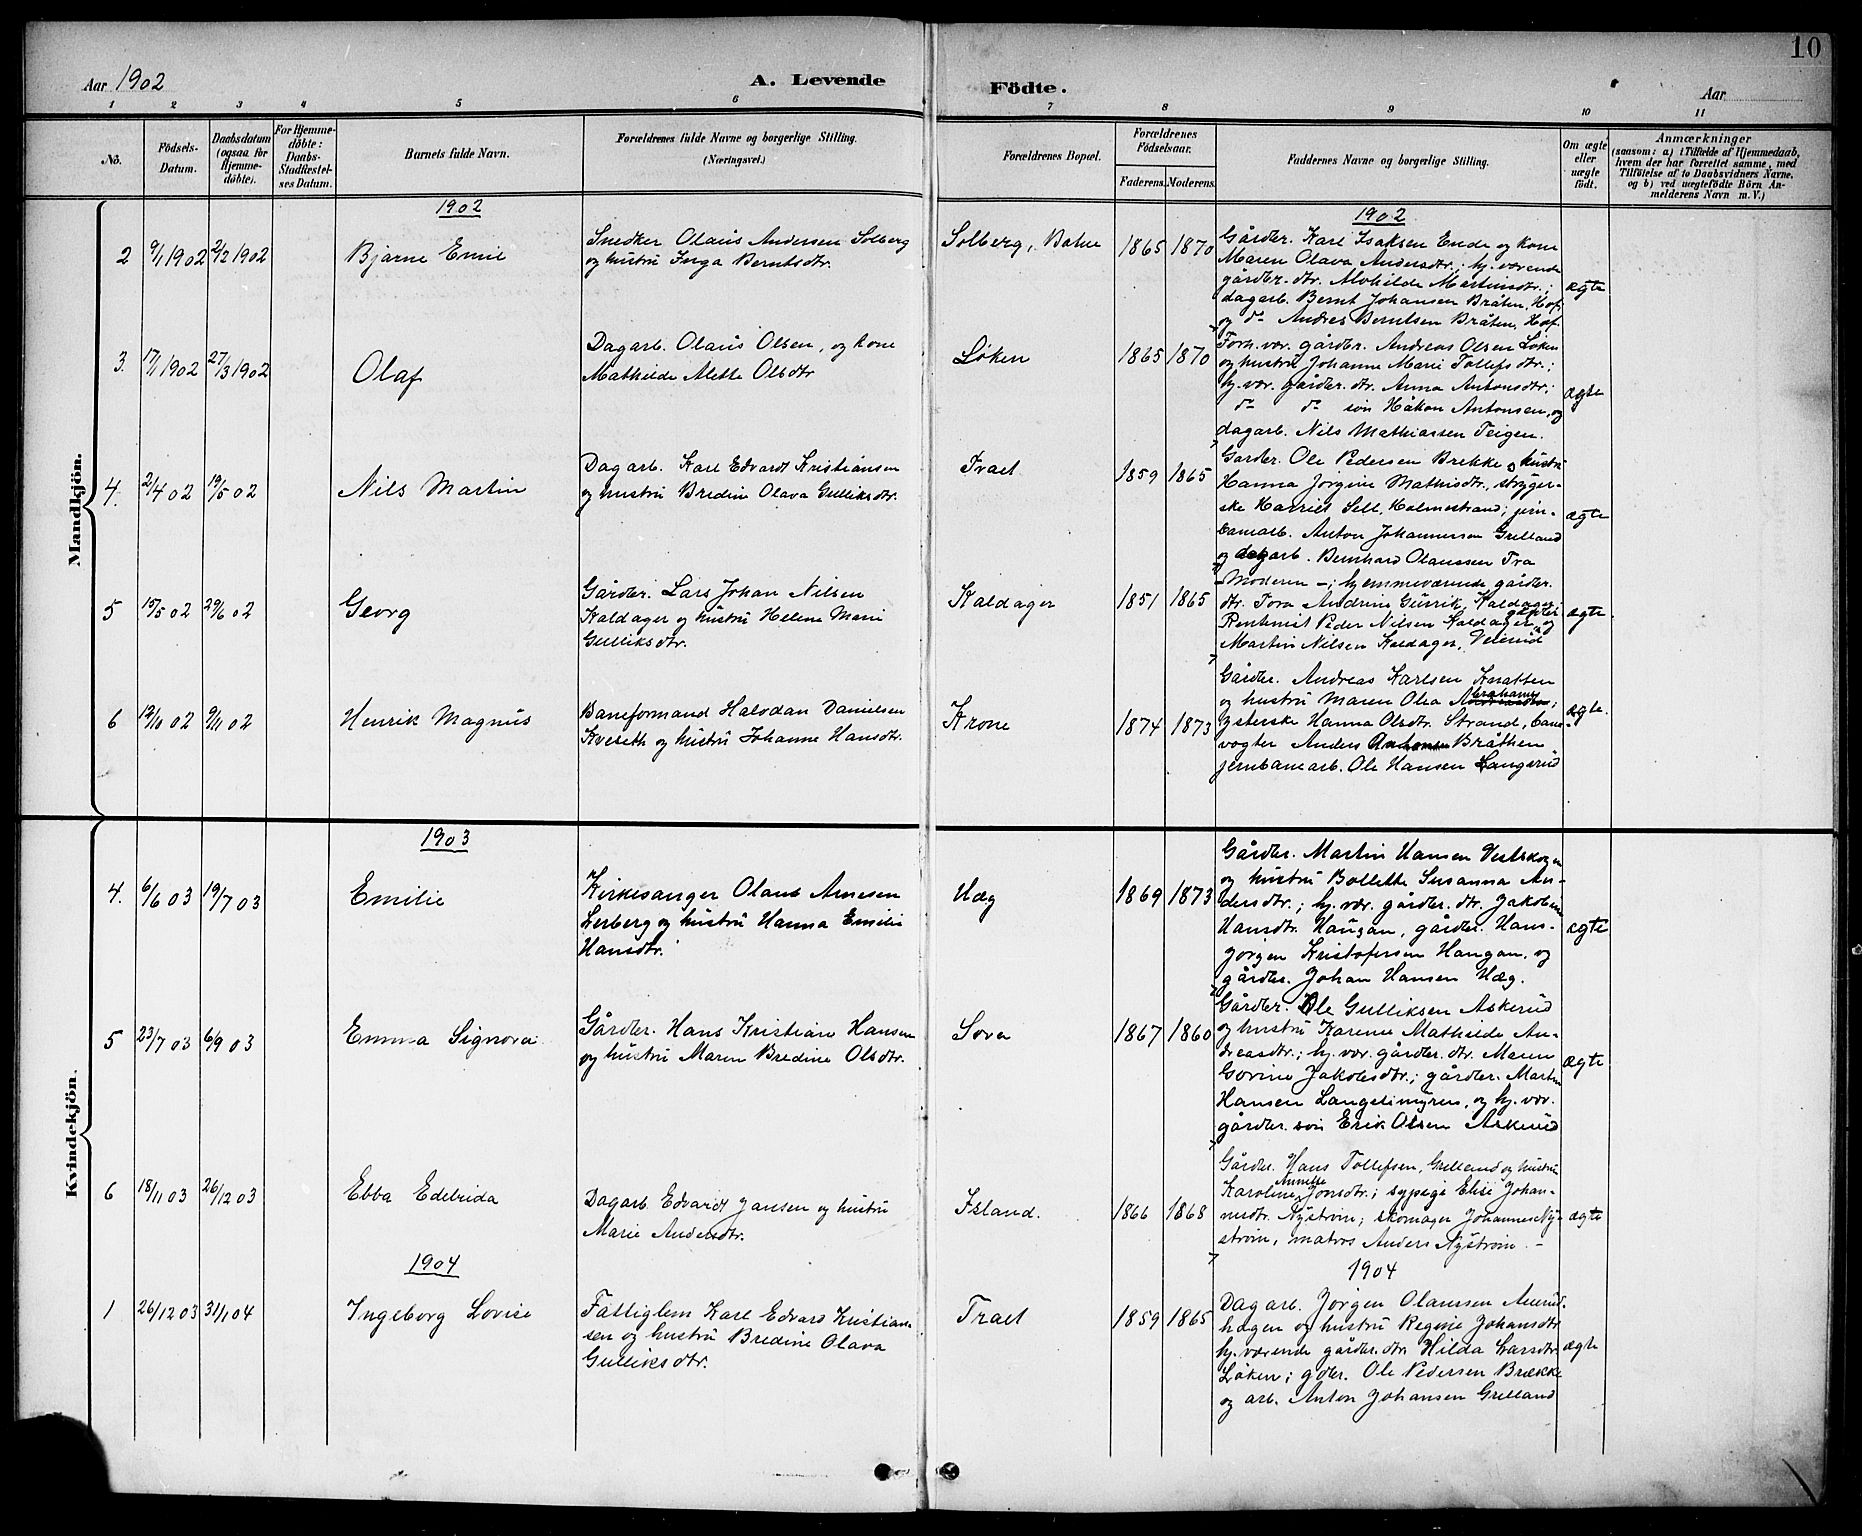 10
Aar 1902
A. Levende
Födte.
Aar
1 2 3 4 5 6 7 8 9 10 11
No.
Födsels-
Datum.
Daabsdatum
(ogsaa for
Hjemme-
döbte).
For Hjemme-
döbte:
Daabs-
Stadfæstel-
ses Datum.
Barnets fulde Navn.
Forældrenes fulde Navne og borgerlige Stilling.
(Næringsvei.)
Forældrenes Bopæl.
Forældrenes
Födselsaar.
Faderens. Moderens.
Faddernes Navne og borgerlige Stilling.
Om ægte
eller
uægte
født.
Anmærkninger
(saasom: a) i Tilfælde af Hjemmedaab,
hvem der har forrettet samme, med
Tilföielse af to Daabsvidners Navne.
og b) ved uægtefödte Börn An-
melderens Navn m. V.)
Mandkjön.
1902
1902
2
9/1 1902
2/2 1902
Bjarne Emil
Snedker Olaus Andersen Solberg
og hustru Inga Berntsdtr.
Solberg, Botne
1865
1870
Gårdbr. Karl Isaksen Ende og kone
Maren Olava Andersdtr.; hj. værende
gårdbr. dtr. Alvhilde Martinsdtr.;
dagarb. Bernt Johansen Bråten, Hof,
og do Andres Berntsen Bråten, Hof.
ægte
3.
17/1 1902
27/3 1902
Olaf
Dagarb. Olaus Olsen, og kone
Mathilde Alette Olsdtr
Løken
1865
1870
Forh. vær. gårdbr. Andreas Olsen Løken
og hustru Johanne Marie Tollefsdtr.;
hj. vær. gårdbr. dtr. Anna Antonsdtr.;
do do søn Håkon Antonsen, og
dagarb. Nils Mathiassen Teigen.
ægte
4.
2/4 02
19/5 02
Nils Martin
Dagarb. Karl Edvardt Kristiansen
og hustru Bredine Olava Gulliksdtr.
Traet
1859
1865
Gardbr. Ole Pedersen Brekke og hustru
Hanna Jørgine Mathisdtr., stryger-
ske Harriet Sell, Holmestrand; jern-
banearb. Anton Johannesen Grelland
og dagarb. Bernhard Olaussen Tra
ægte
5
15/5 02
29/6 02
Georg
Gårdbr. Lars Johan Nilsen
Kaldager og hustru Helene Marie
Gulliksdtr.
Kaldager
1851
1865
Moderen –; hjemmeværende gårdbr.
dtr. Tora Andrine Gunrik, Kaldager,
Rentenist Peder Nilsen Kaldager, og
gårdbr
Martin Nilsen Kaldager, Veierud
ægte
6
19/10 02
9/11 02
Henrik Magnus
Baneformand Halvdan Danielsen
Kveseth og hustru Johanne Hansdtr.
Krone
1874
1873
Gårdbr. Andreas Karlsen Knatten
og hustru Maren Olea Abrahams;
systerske Hanna Olsdtr. Strand, bane-
vogter Anders Antonsen Bråthen
jernbanearb. Ole Hansen Langerud
ægte.
Kvindekjön.
1903
4.
6/6 03
19/7 03
Emilie
Kirkesanger Olaus Arnesen
Lerberg og hustru Hanna Emilie
Hansdtr.
Hæg
1869
1873
Gårdbr. Martin Hansen Vestskogen
og hustru Bollette Susanna An-
dersdtr.; hj. vær. gårdbr. dtr. Jakobine
Hansdtr. Haugan, gårdbr. Hans-
Jørgen Kristofersen Haugan, og
gårdbr. Johan Hansen Hæg.
ægte
5
23/7 03
6/9 03
Emma Signora
Gårdbr. Hans Kristian Hansen
og hustru Maren Bredine Olsdtr.
Sova
1867
1860
Gårdbr. Ole Gulliksen Askerud
og hustru Karenne Mathilde An-
dreasdtr.; hj. vær. gårdbr. dtr. Maren
Govine Jakobsdtr.; gårdbr. Martin
Hansen Langelimyren, og hj. vær.
gårdbr. søn Erik Olsen Askerud
ægte
6
18/11 03
26/12 03
Ebba Edelrida
Dagarb. Edvardt Jansen og hustru
Marie Andersdtr.
Island.
1866
1868
Gårdbr. Hans Tollefsen, Grelland og hustru
Karoline Annette Jonsdtr.; sypige Elise Johan-
nesdtr. Nystrøm; skomager Johannes Ny-
strøm, matros Anders Nystrøm. –
ægte
1904
1904
1
26/12 03
31/1 04
Ingeborg Lovise
Fattiglem Karl Edvard Kristian-
sen og hustru Bredine Olava
Gulliksdtr.
Traet
1859
1865
Dagarb. Jørgen Olaussen Aurud-
hagen og hustru Regine Johansdtr
hj. værende gårdbr. dtr. Hilda Larsdtr
Løken; gdbr. Ole Pedersen Brække
og arb. Anton Johansen Grelland
ægte